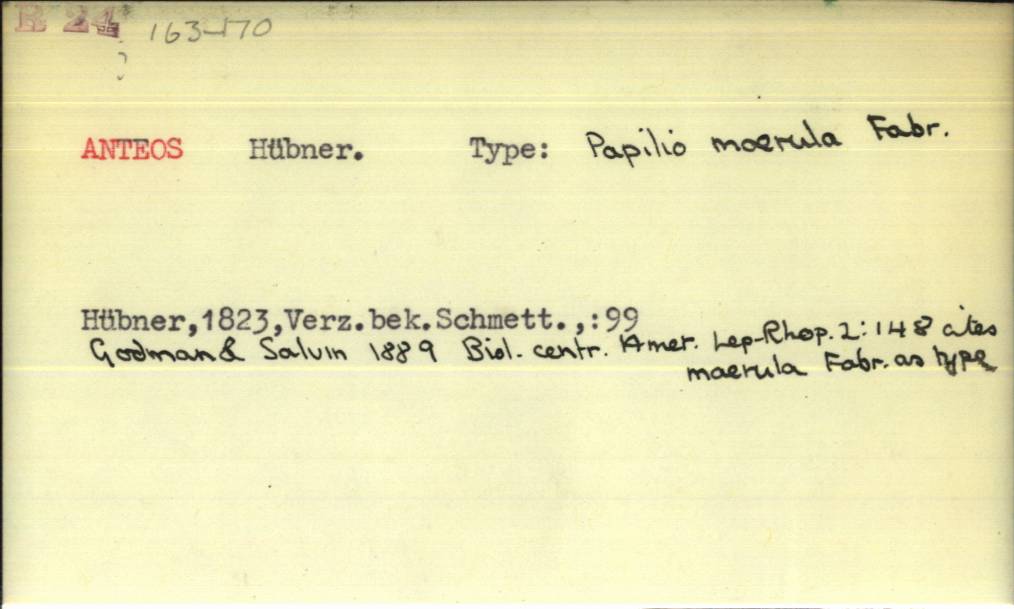 R 24 163-170
ANTEOS Hübner. Type: Papilio maerula Fabr.
Hübner,1823,Verz.bek.Schmett.,:99
Godman & Salvin 1889 Biol. centr. Amer. Lep-Rhop. 2:148 cites
maerula Fabr. as type